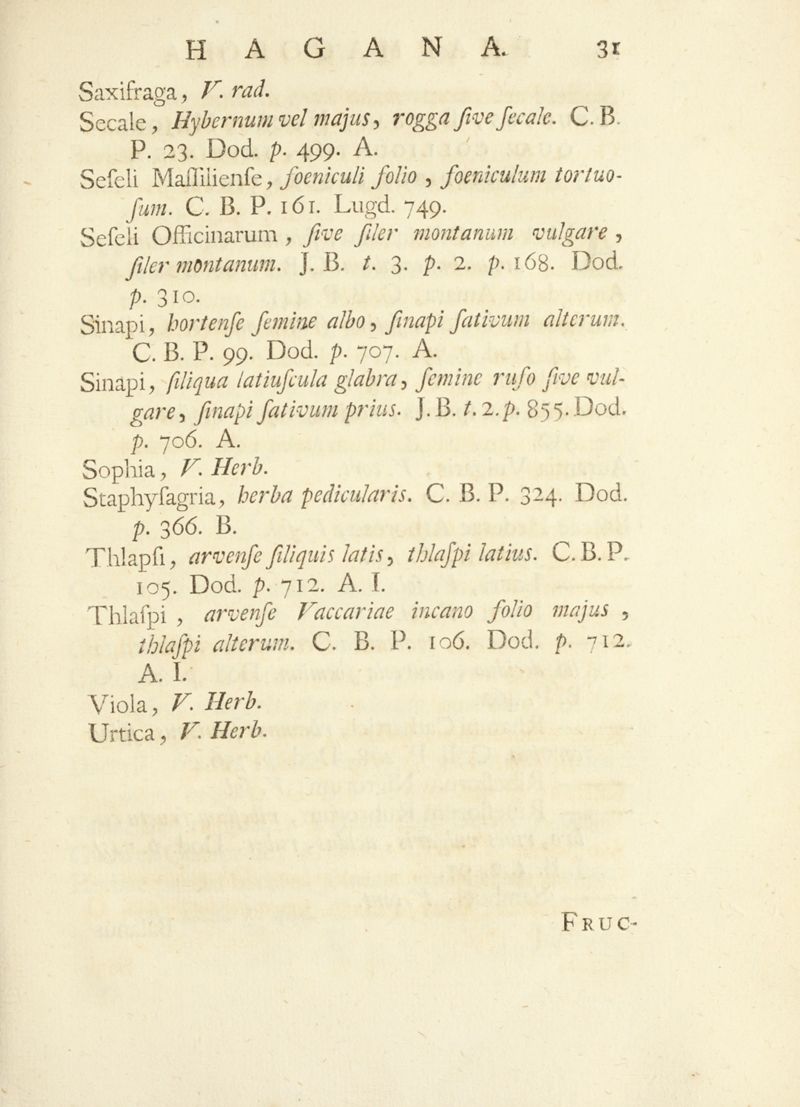 H A G A N A. 31
Saxifraga, V. rad.
Secale, Hybernum vel majus, rogga ſive ſecale. C. B.
P. 23. Dod. p. 499. A.
Seſeli Maſſilienſe, foeniculi folio, foeniculum tortuo-
ſum. C. B. P. 161. Lugd. 749.
Seſeli Officinarum, ſive ſiler montanum vulgare,
ſiler montanum. J. B. t. 3. p. 2. p. 168. Dod.
p. 310.
Sinapi, hortenſe ſemine albo, ſinapi ſativum alterum.
C. B. P. 99. Dod. p. 707. A.
Sinapi, ſiliqua latiuſcula glabra, ſemine rufo ſive vul-
gare, ſinapi ſativum prius. J. B. t. 2. p. 855. Dod.
p. 706. A.
Sophia, V. Herb.
Staphyſagria, herba pedicularis. C. B. P. 324. Dod.
p. 366. B.
Thlapſi, arvenſe ſiliquis latis, thlaſpi latius. C. B. P.
105. Dod. p. 712. A. I.
Thlaſpi, arvenſe Vaccariae incano folio majus,
thlaſpi alterum. C. B. P. 106. Dod. p. 712.
A. I.
Viola, V. Herb.
Urtica, V. Herb.
FRUC-